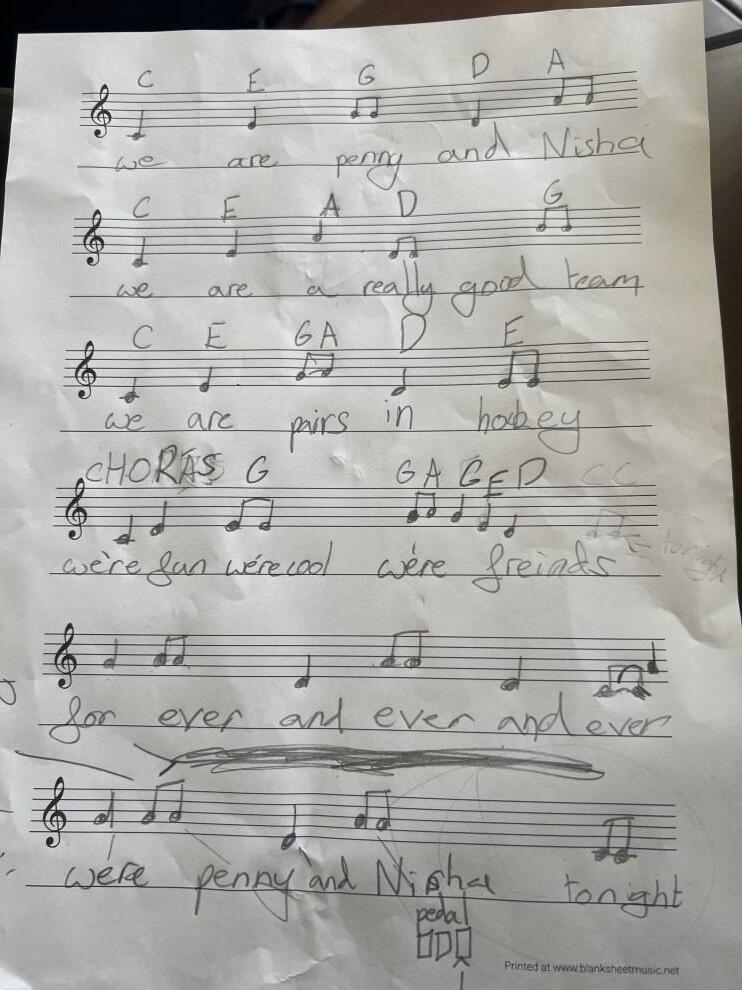 C E G D A
we are penny and Nisha
C E A D G
we are a really good team
C E G A D E
we are pairs in hobey
CHORAS G G A G E D C C
we're fun we're cool we're freinds tonight
for ever and ever and ever
we're penny and Nisha tonight
pedal
Printed at www.blanksheetmusic.net